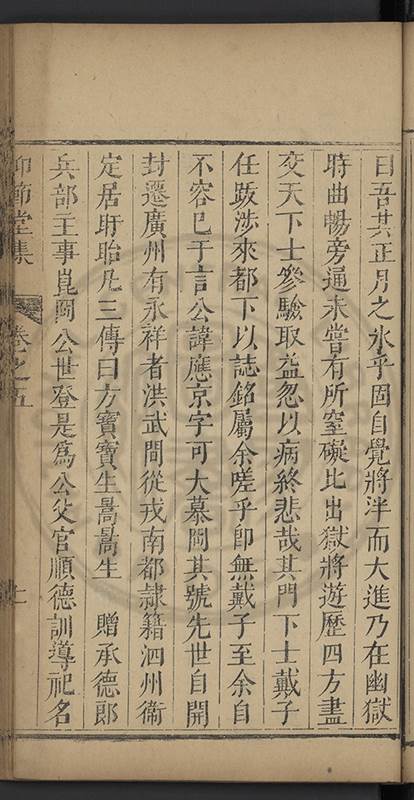 曰吾其正月之氷乎固自覺將泮而大進乃在幽獄
時曲暢旁通未嘗有所窒礙比出獄將遊歷四方盡
交天下士參驗取益忽以病終悲哉其門下士戴子
任跋涉來都下以誌銘屬余嗟乎即無戴子至余自
不容已于言公諱應京字可大慕岡其號先世自開
封遷廣州有永祥者洪武間從戎南都隷籍泗州衛
定居盱眙凡三傳曰方寶寶生暠暠生 贈承德郎
兵部主事崑岡公世登是為公父官順德訓導祀名
仰節堂集 卷之五